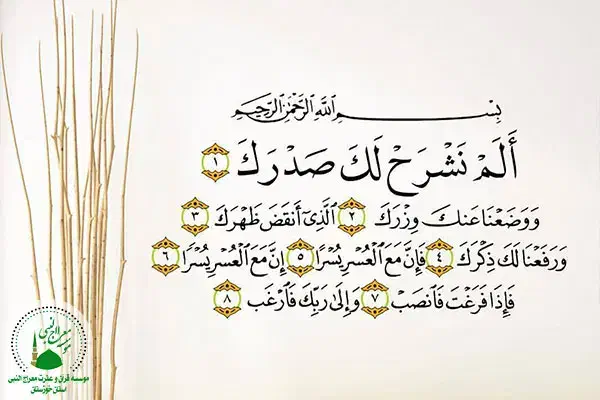 بِسْمِ ٱللَّهِ ٱلرَّحْمَٰنِ ٱلرَّحِيمِ
أَلَمْ نَشْرَحْ لَكَ صَدْرَكَ ١
وَوَضَعْنَا عَنكَ وِزْرَكَ ٢ ٱلَّذِىٓ أَنقَضَ ظَهْرَكَ ٣
وَرَفَعْنَا لَكَ ذِكْرَكَ ٤ فَإِنَّ مَعَ ٱلْعُسْرِ يُسْرًا ٥ إِنَّ مَعَ ٱلْعُسْرِ يُسْرًا ٦
فَإِذَا فَرَغْتَ فَٱنصَبْ ٧ وَإِلَىٰ رَبِّكَ فَٱرْغَب ٨
موسسه معراج النبی
موسسه قرآن و عترت معراج النبی
استان خوزستان